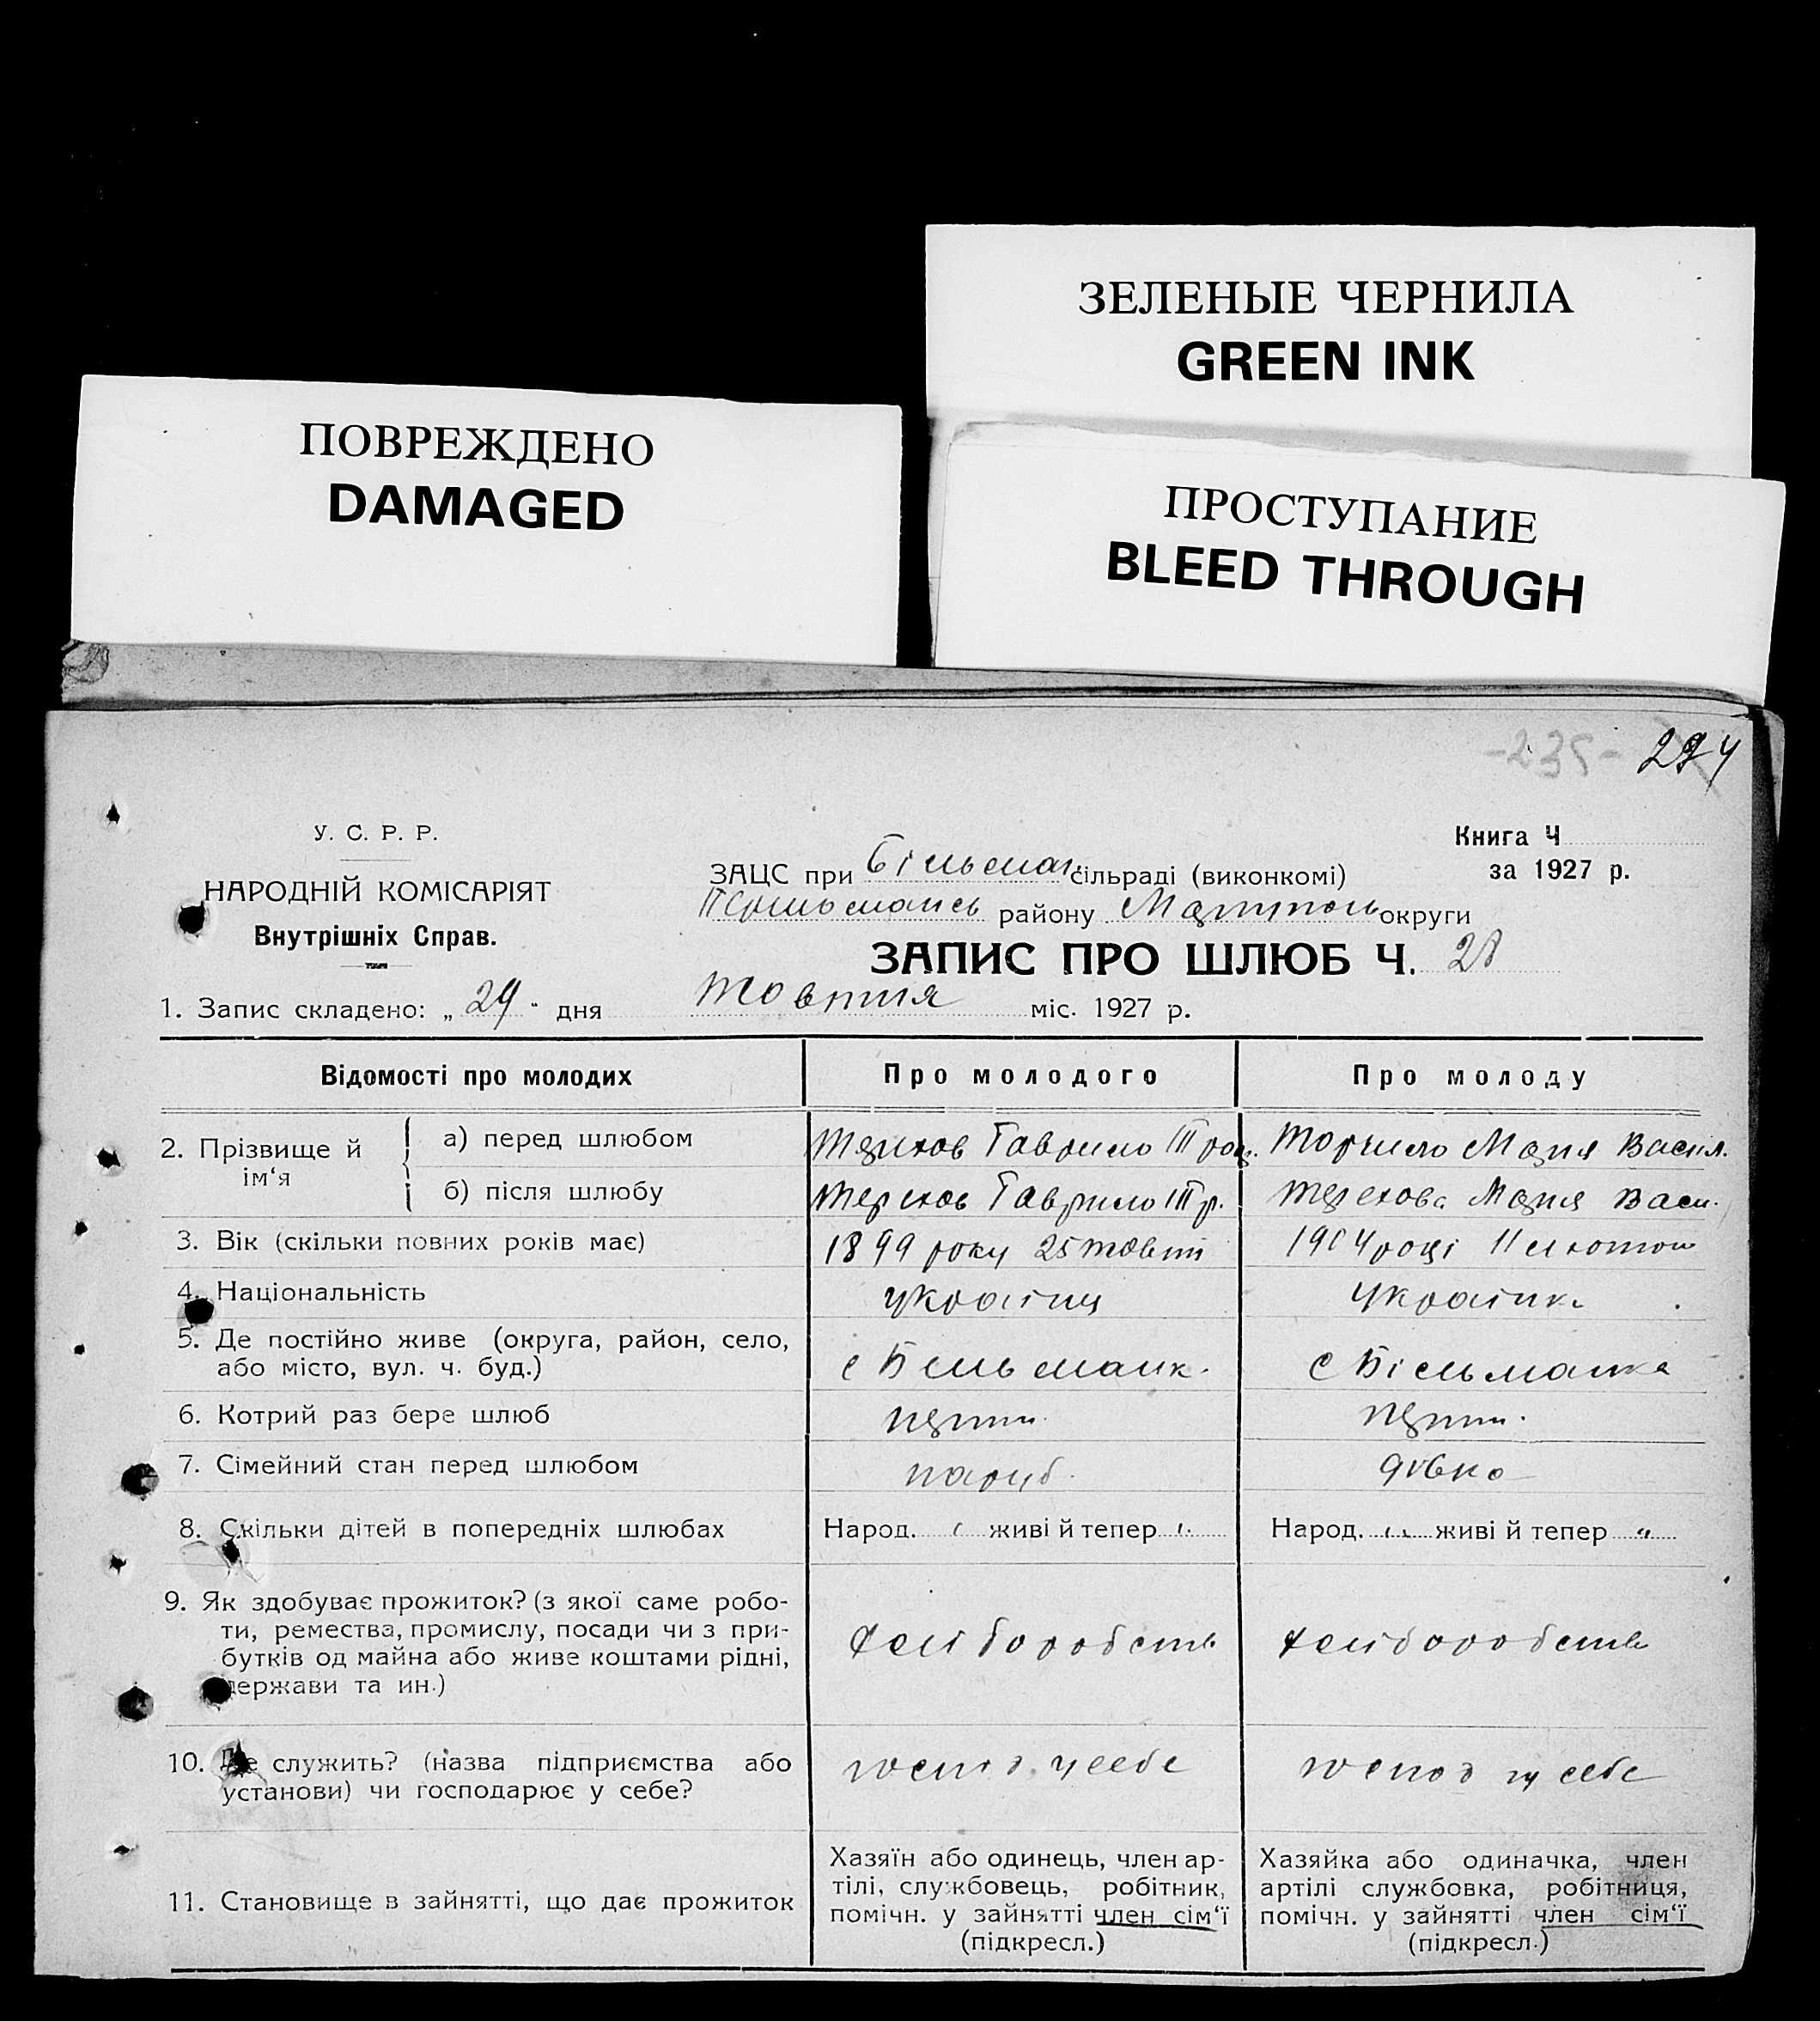 ЗЕЛЕНЫЕ ЧЕРНИЛА
GREEN INK
ПОВРЕЖДЕНО
DAMAGED
ПРОСТУПАНИЕ
BLEED THROUGH
-235-
У. С. Р. Р.
НАРОДНІЙ КОМІСАРІЯТ
Внутрішніх Справ.
Книга Ч
за 1927 р.
ЗАЦС при Більман. сільраді (виконкомі)
району округи
ЗАПИС ПРО ШЛЮБ Ч. 28
1. Запис складено: „ 29 " дня Жовтня міс. 1927 р.
Відомості про молодих
Про молодого
Про молоду
2. Прізвище й ім‘я
а) перед шлюбом
Терехов Гаврило Марія Васил.
б) після шлюбу
Терехов Гаврило Тр.
Терехова Марія Васи.
3. Вік (скільки повних років має)
1899 року 25 жовт
1904 році 11 лютого
4. Національність
українц
українка
5. Де постійно живе (округа, район, село,
або місто, вул. ч. буд.)
с Більманк.
с Більманка
6. Котрий раз бере шлюб
перши.
перши.
7. Сімейний стан перед шлюбом
паруб.
дівка
8. Скільки дітей в попередніх шлюбах
Народ. живі й тепер
Народ. живі й тепер
9. Як здобуває прожиток? (з якої саме робо-
ти, ремества, промислу, посади чи з при-
бутків од майна або живе коштами рідні,
держави та ин.)
хліборобств
хліборобств
10. Де служить? (назва підприємства або
установи) чи господарює у себе?
господ. у себе
господ у себе
11. Становище в зайнятті, що дає прожиток
Хазяїн або одинець, член ар-
тілі, службовець, робітник,
помічн. у зайнятті член сім‘ї
(підкресл.)
Хазяйка або одиначка, член
артілі службовка, робітниця,
помічн. у зайнятті член сім‘ї
(підкресл.)